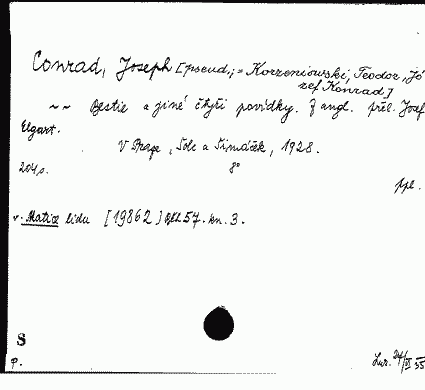 Conrad, Joseph [pseud.; = Korzeniowski, Teodor, Jó
zef Konrad]
~~ Bestie a jiné čtyři povídky. Z angl. přel. Josef
Elgart.
V Praze, Šolc a Šimáček, 1928.
204 s. 8°
ppl.
v. Matice lidu [19862] Roč. 57. kn. 3.
S
p. Lur. 24/VI 55